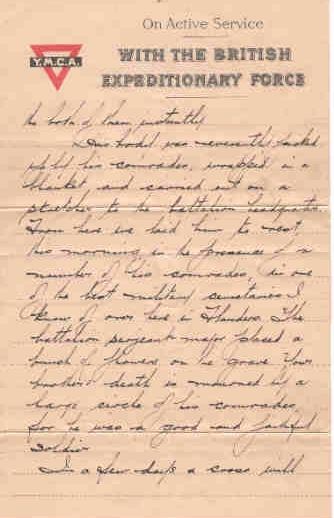 On Active Service
Y.M.C.A.
WITH THE BRITISH
EXPEDITIONARY FORCE
both of them instantly
His body was reverently picked
up by his comrades, wrapped in a
blanket and carried out on a
stretcher to the battalion headquarters
From here we laid him to rest
this morning in the presence of a
number of his comrades, in one
of the best military cemetaries I
know of over here in Flanders. The
battalion sergeant major placed a
bunch of flowers on the grave Your
brothers death is mourned by a
large circle of his comrades
for he was a good and faithful
soldier
In a few days a cross will